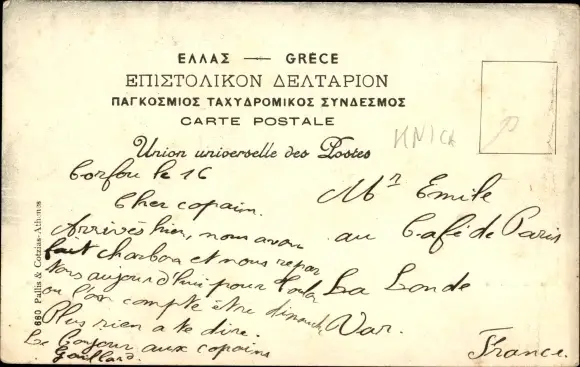 ΕΛΛΑΣ — GRÈCE
ΕΠΙΣΤΟΛΙΚΟΝ ΔΕΛΤΑΡΙΟΝ
ΠΑΓΚΟΣΜΙΟΣ ΤΑΧΥΔΡΟΜΙΚΟΣ ΣΥΝΔΕΣΜΟΣ
CARTE POSTALE
Union universelle des Postes
Corfou le 16
Cher copain.
Arrivés hier, nous avon
fait charbon et nous repar
tons aujourd'hui pour Toulon
ou l'on compte être dimanche
Plus rien a te dire.
Le bonjour aux copains
Gaillard.
Mr Emile
au Café de Paris
La Londe
Var.
France.
660 Pallis & Cotzias-Athènes